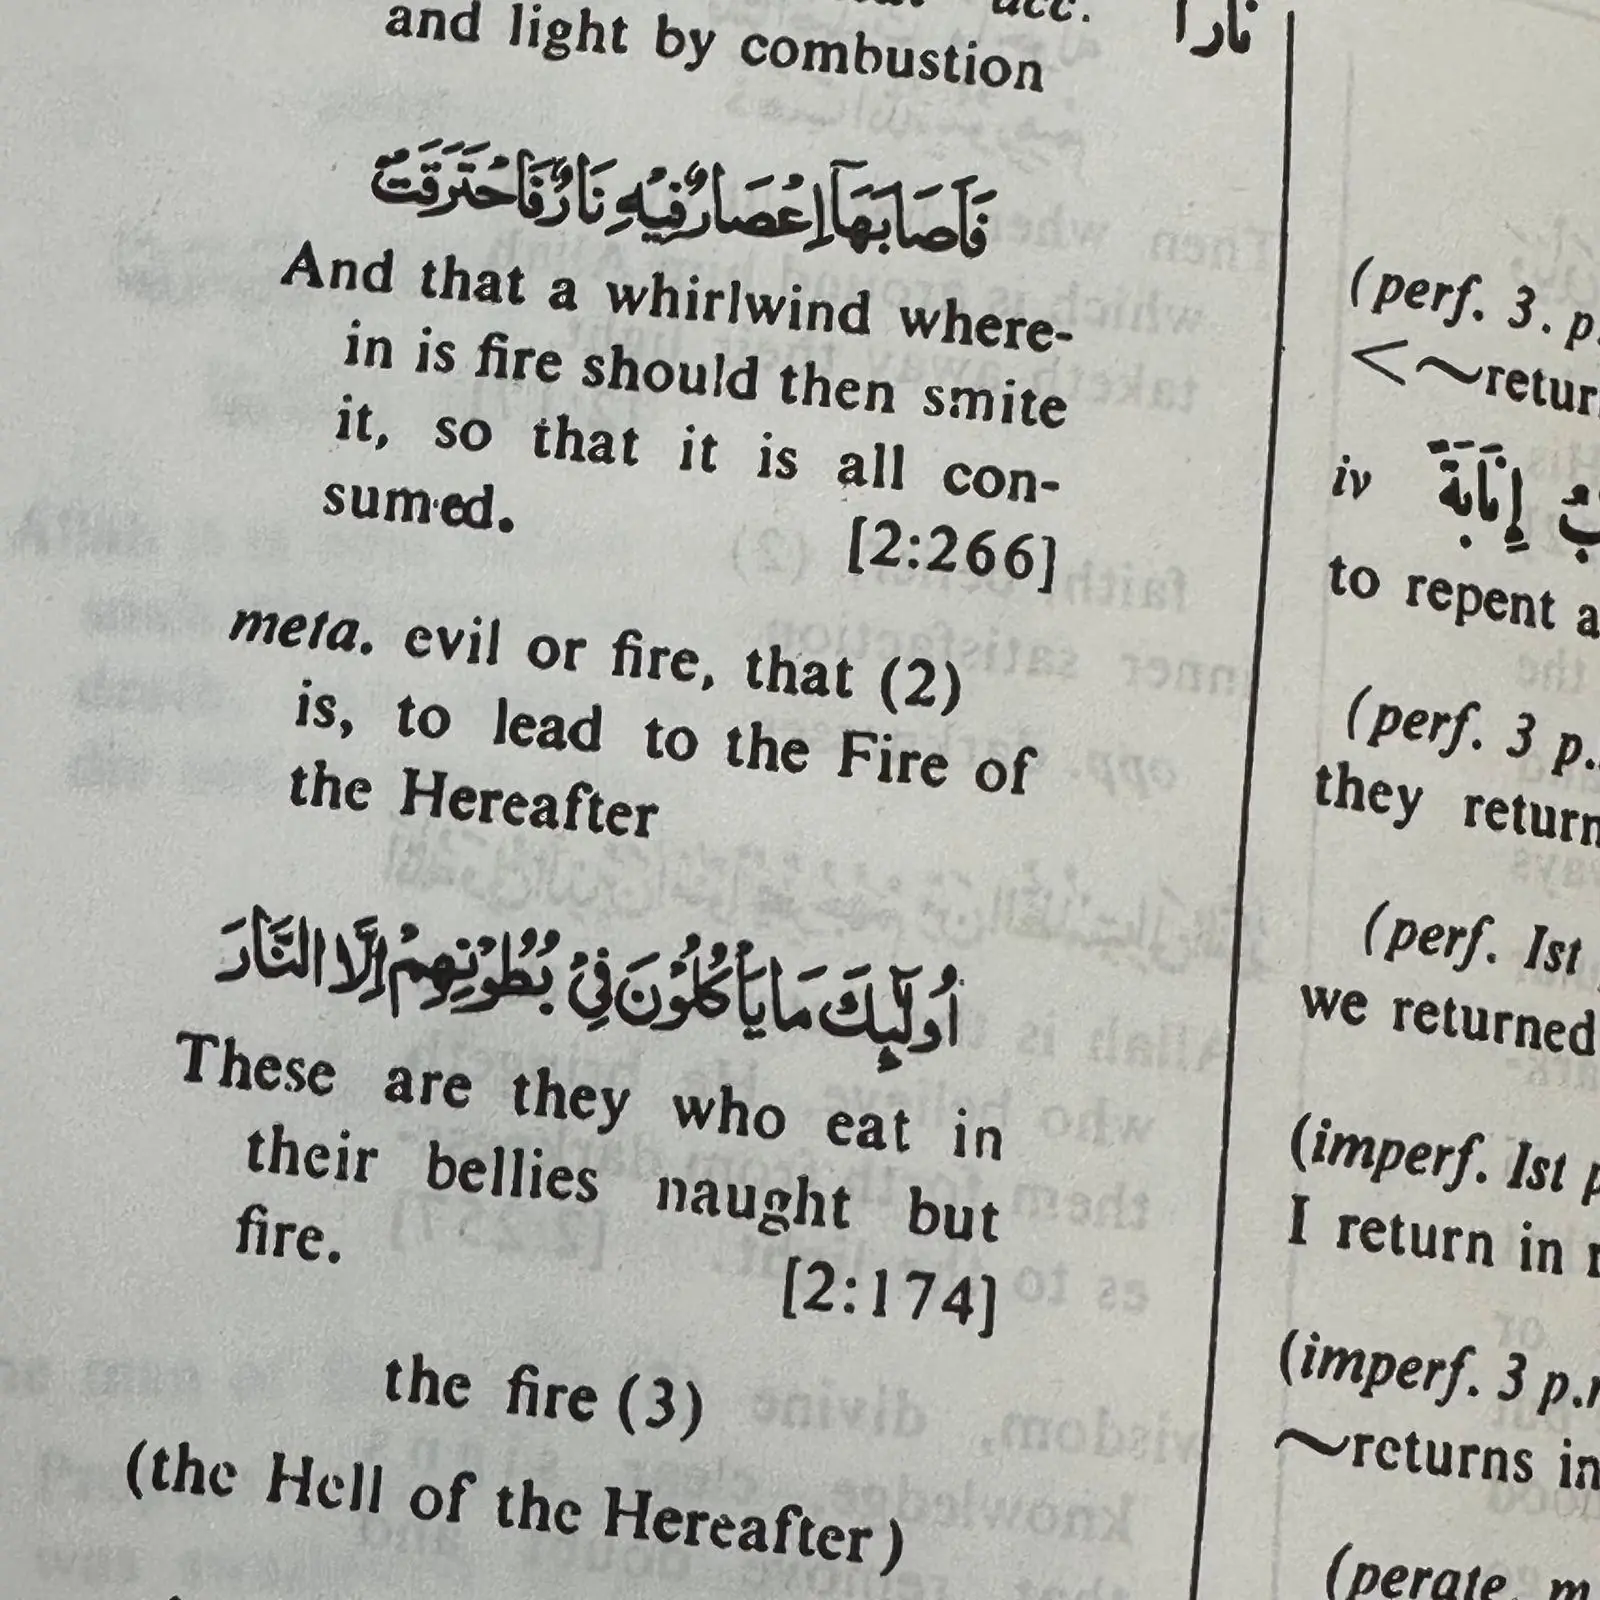 acc. نارا
and light by combustion
فَأَصَابَهَآ إِعْصَارٌ فِيْهِ نَارٌ فَاحْتَرَقَتْ
And that a whirlwind where-
in is fire should then smite
it, so that it is all con-
sumed. [2:266]
meta. evil or fire, that (2)
is, to lead to the Fire of
the Hereafter
أُولَٰٓئِكَ مَا يَأْكُلُوْنَ فِيْ بُطُوْنِهِمْ إِلَّا النَّارَ
These are they who eat in
their bellies naught but
fire. [2:174]
the fire (3)
(the Hell of the Hereafter)
(perf. 3. p.
<~retur
iv إِنَابَةً
to repent a
(perf. 3 p.
they return
(perf. Ist
we returned
(imperf. Ist p
I return in
(imperf. 3 p.
~returns in
(perate. m